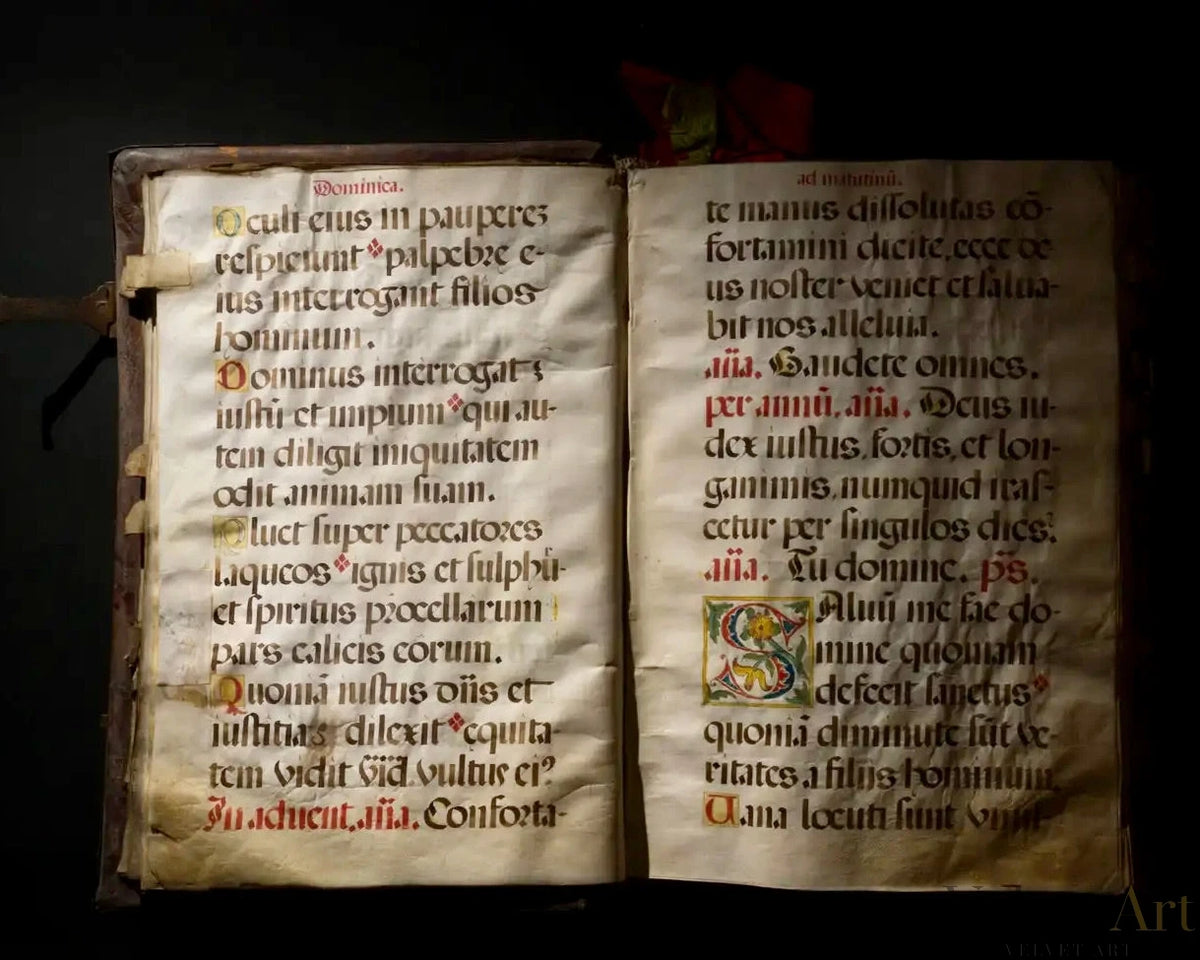 Dominica.
Oculi eius in pauperez
respiciunt palpebre e-
ius interrogant filios
hominum.
Dominus interrogat
iustū et impium qui au-
tem diligit iniquitatem
odit animam suam.
Pluet super peccatores
laqueos ignis et sulphū-
et spiritus procellarum
pars calicis eorum.
Quoniā iustus dñs et
iustitias dilexit equita-
tem vidit vultus ei⁹
In aduent. aña. Conforta-
ad matutinū.
te manus dissolutas cō-
fortamini dicite, ecce de-
us noster veniet et salua-
bit nos alleluia.
aña. Gaudete omnes.
per annū. aña. Deus iu-
dex iustus, fortis, et lon-
ganimis, numquid iras-
cetur per singulos dies?
aña. Tu domine. ps.
SAluū me fac do-
mine quoniam
defecit sanctus
quoniā diminute sūt ve-
ritates a filijs hominum.
Uana locuti sunt
Art
VELVET ART